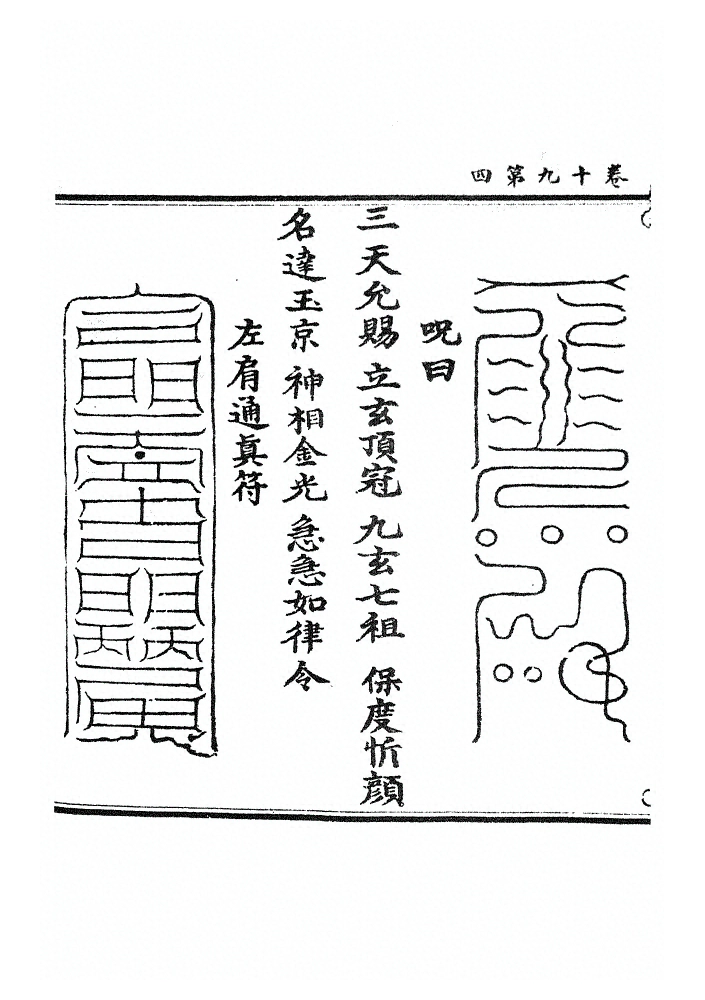 卷十九第四
呪曰
三天允賜 立玄頂冠 九玄七祖 保度忻顔
名達玉京 神相金光 急急如律令
左肩通真符